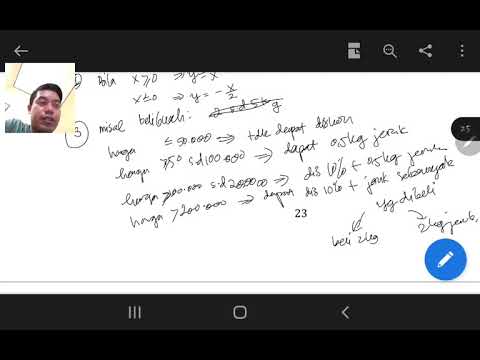 Bila x ≥ 0 ⇒ y = x
x ≤ 0 ⇒ y = -x/2
3 misal beli buah:
harga ≤ 50.000 ⇒ tdk dapat diskon
harga > 50 s.d 100.000 ⇒ dapat 0.5 kg jeruk
harga > 100.000 s.d 200.000 ⇒ dis 10% + 0.5 kg jeruk
harga > 200.000 ⇒ dapat dis 10% + jeruk sebanyak
yg dibeli
beli 2 kg
2 kg jeruk
23
25